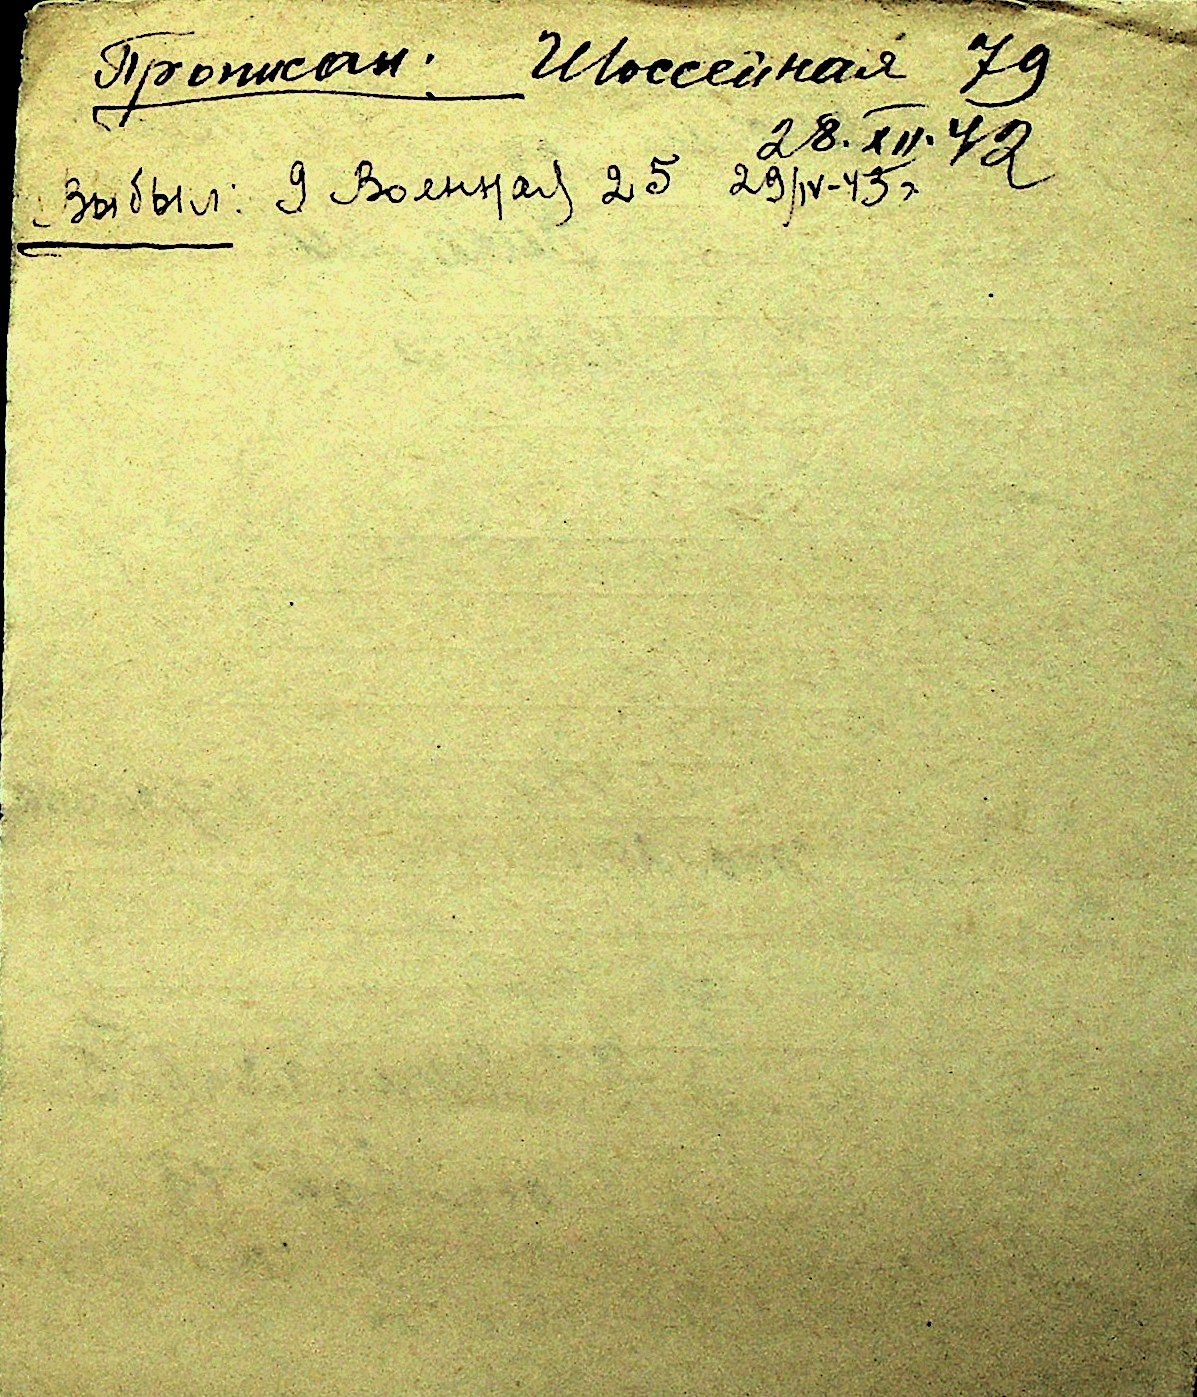 Прописан: Шоссейная 79
28.XII.42
Выбыл: 9 Военная 25 29/IV-43г